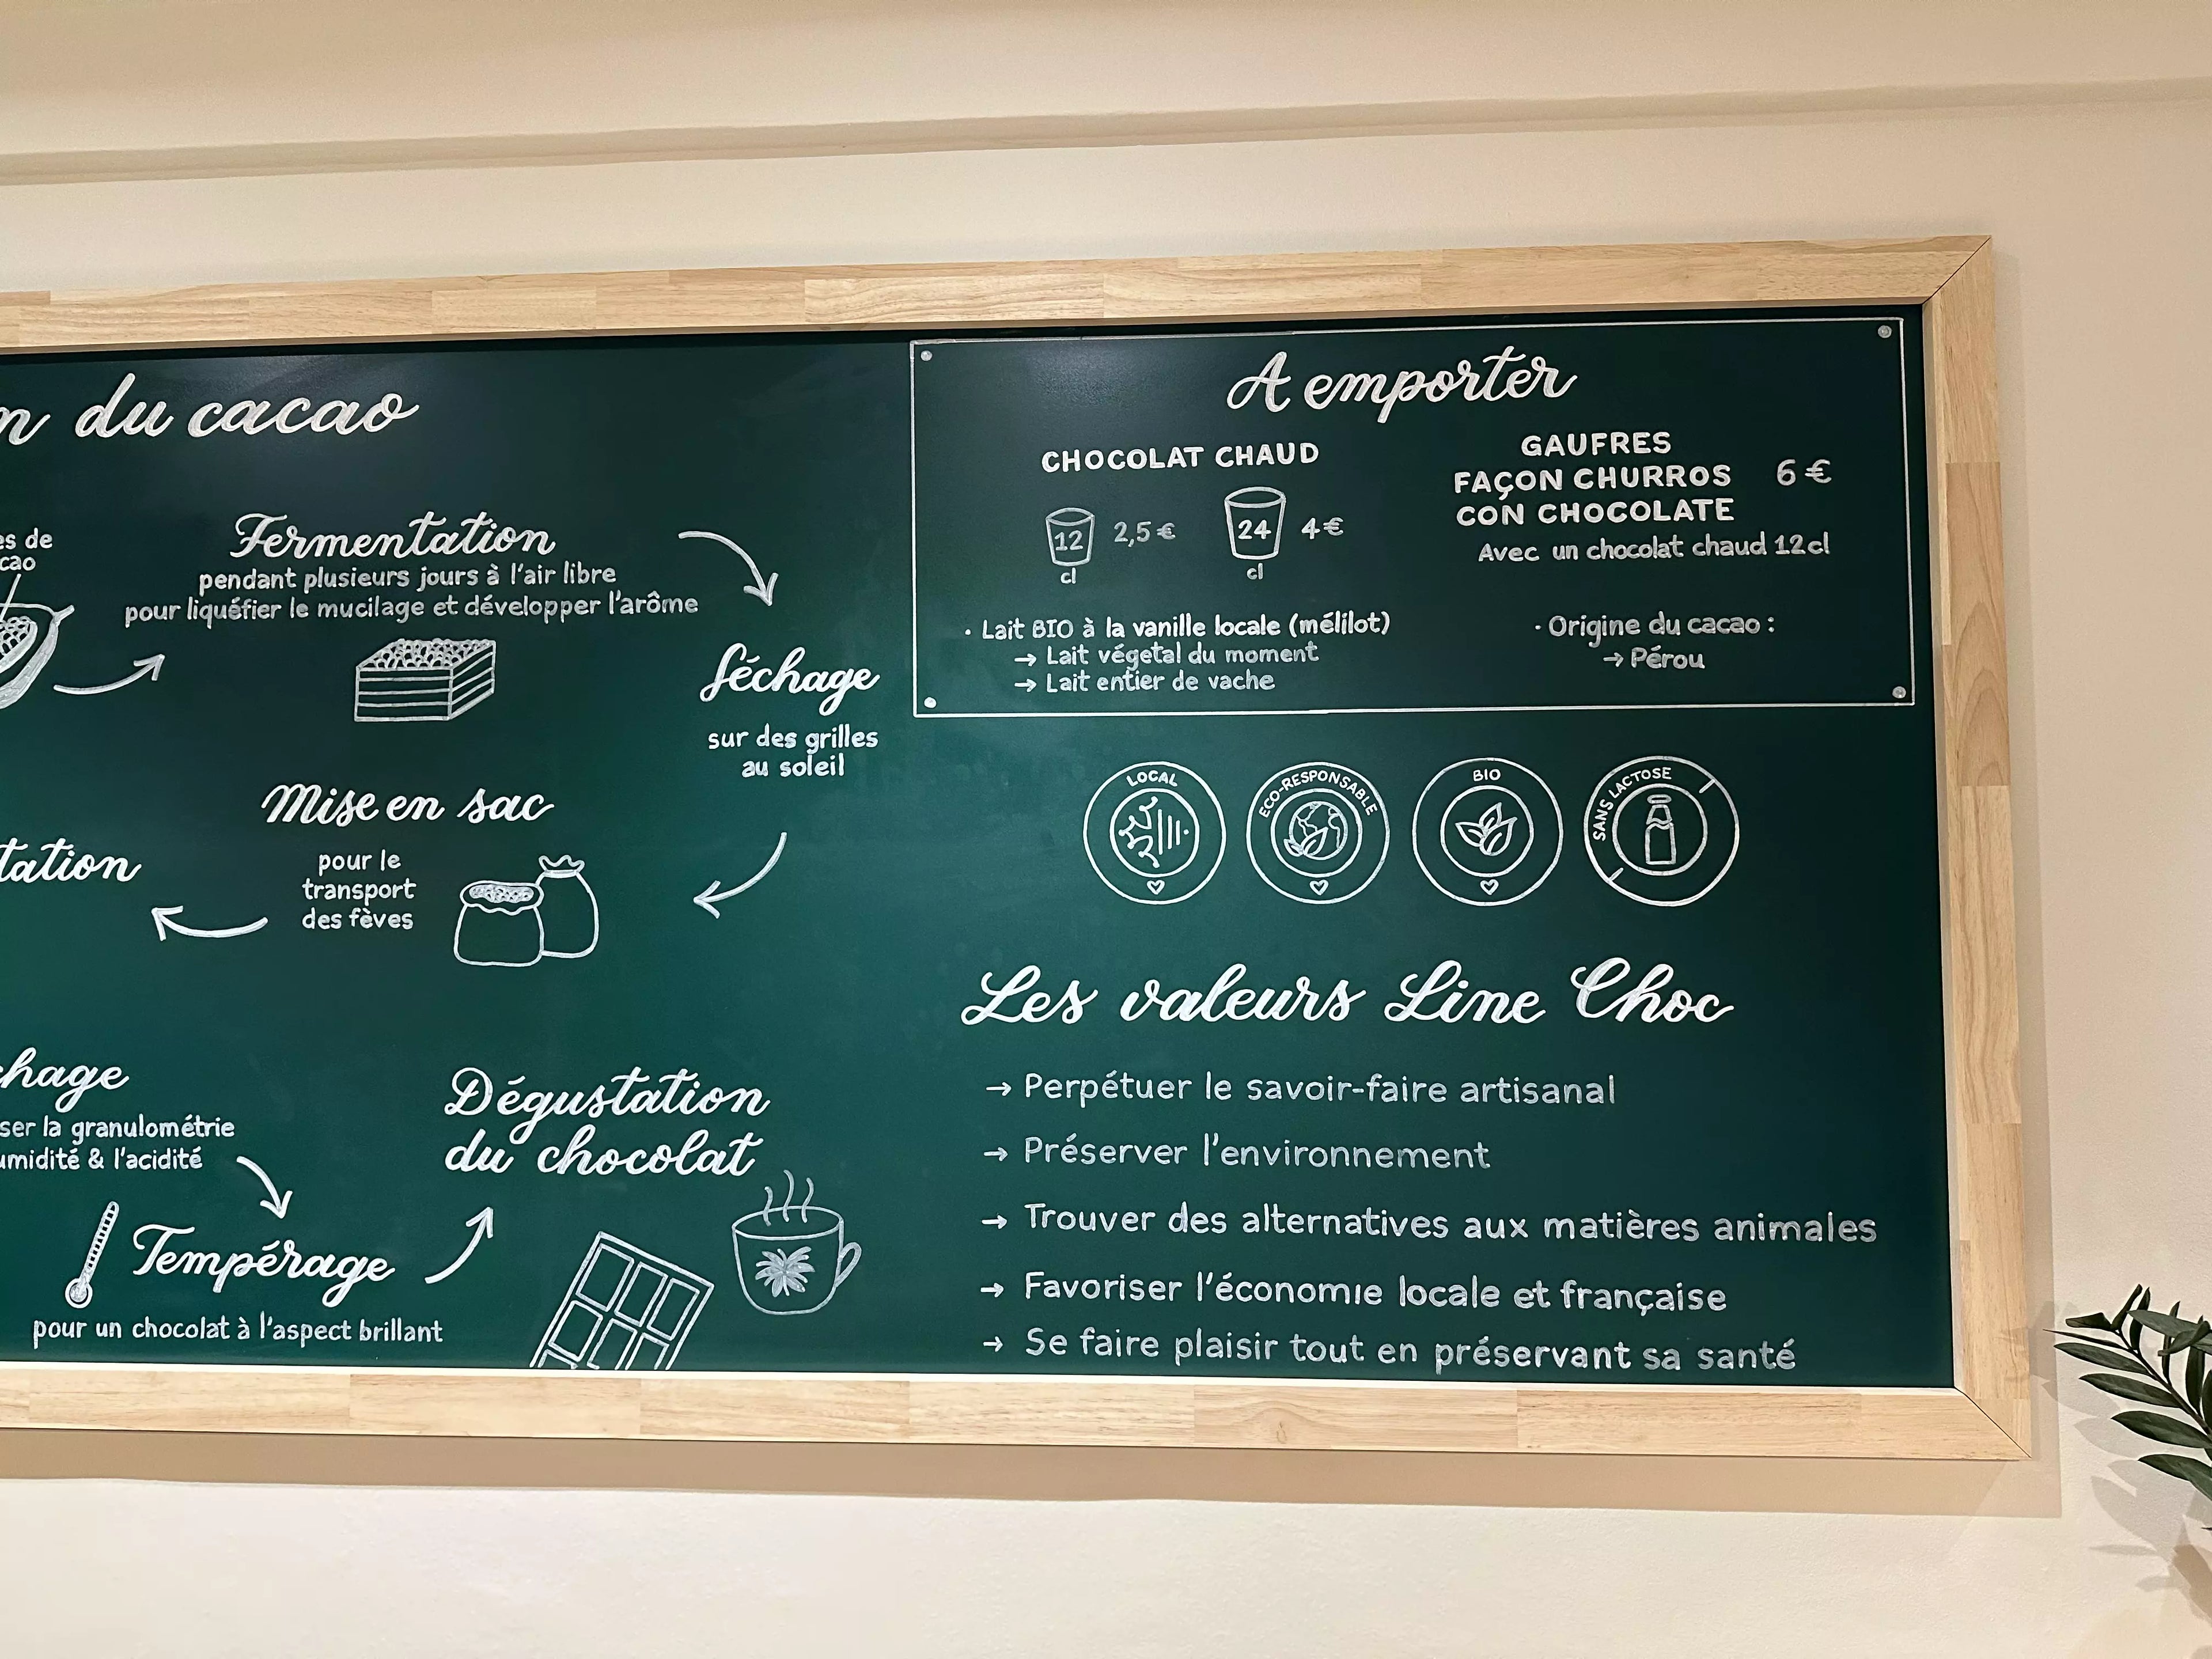 du cacao
de
Fermentation
pendant plusieurs jours à l'air libre
pour liquéfier le mucilage et développer l'arôme
Séchage
sur des grilles
au soleil
Mise en sac
pour le
transport
des fèves
la granulométrie
& l'acidité
Tempérage
pour un chocolat à l'aspect brillant
Dégustation
du chocolat
A emporter
CHOCOLAT CHAUD
12 cl 2,5 €
24 cl 4 €
• Lait BIO à la vanille locale (mélilot)
→ Lait végetal du moment
→ Lait entier de vache
GAUFRES
FAÇON CHURROS 6 €
CON CHOCOLATE
Avec un chocolat chaud 12cl
• Origine du cacao :
→ Pérou
LOCAL
ECO-RESPONSABLE
BIO
SANS LACTOSE
Les valeurs Line Choc
→ Perpétuer le savoir-faire artisanal
→ Préserver l'environnement
→ Trouver des alternatives aux matières animales
→ Favoriser l'économie locale et française
→ Se faire plaisir tout en préservant sa santé